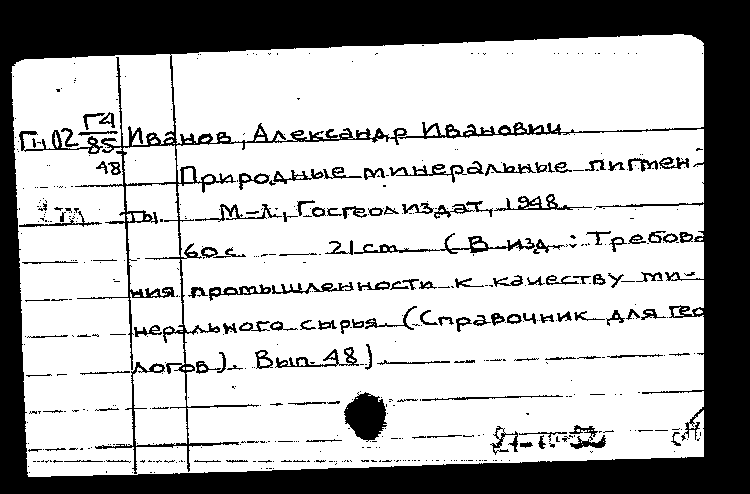 Г4
Гн02 85 Иванов, Александр Иванович.
48 Природные минеральные пигмен-
2 эт ты. М-Л., Госгеолиздат, 1948.
60 с. 21 cm. (В изд.: Требова
ния промышленности к качеству ми-
нерального сырья. (Справочник для гео
логов). Вып. 48).